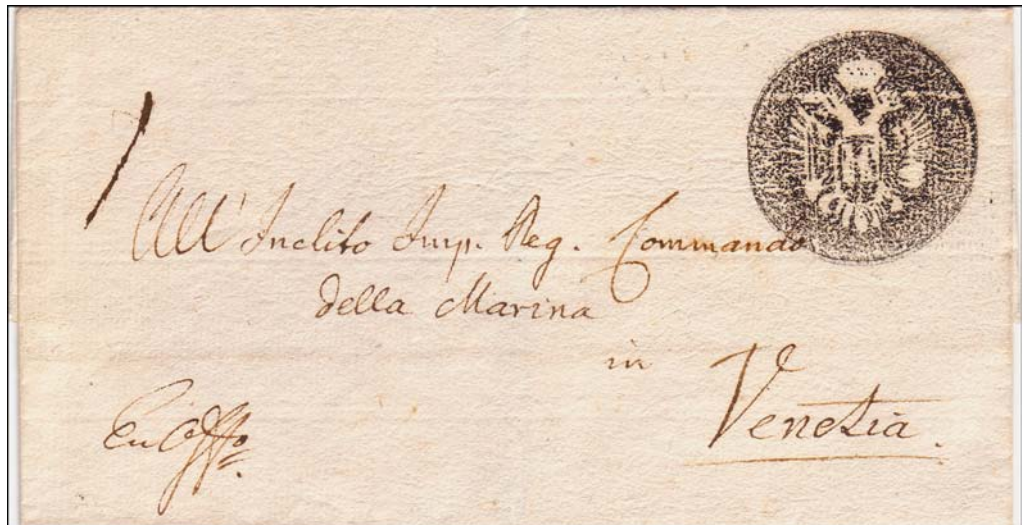 All' Inclito Imp. Reg. Commando
della Marina
in
Venezia.